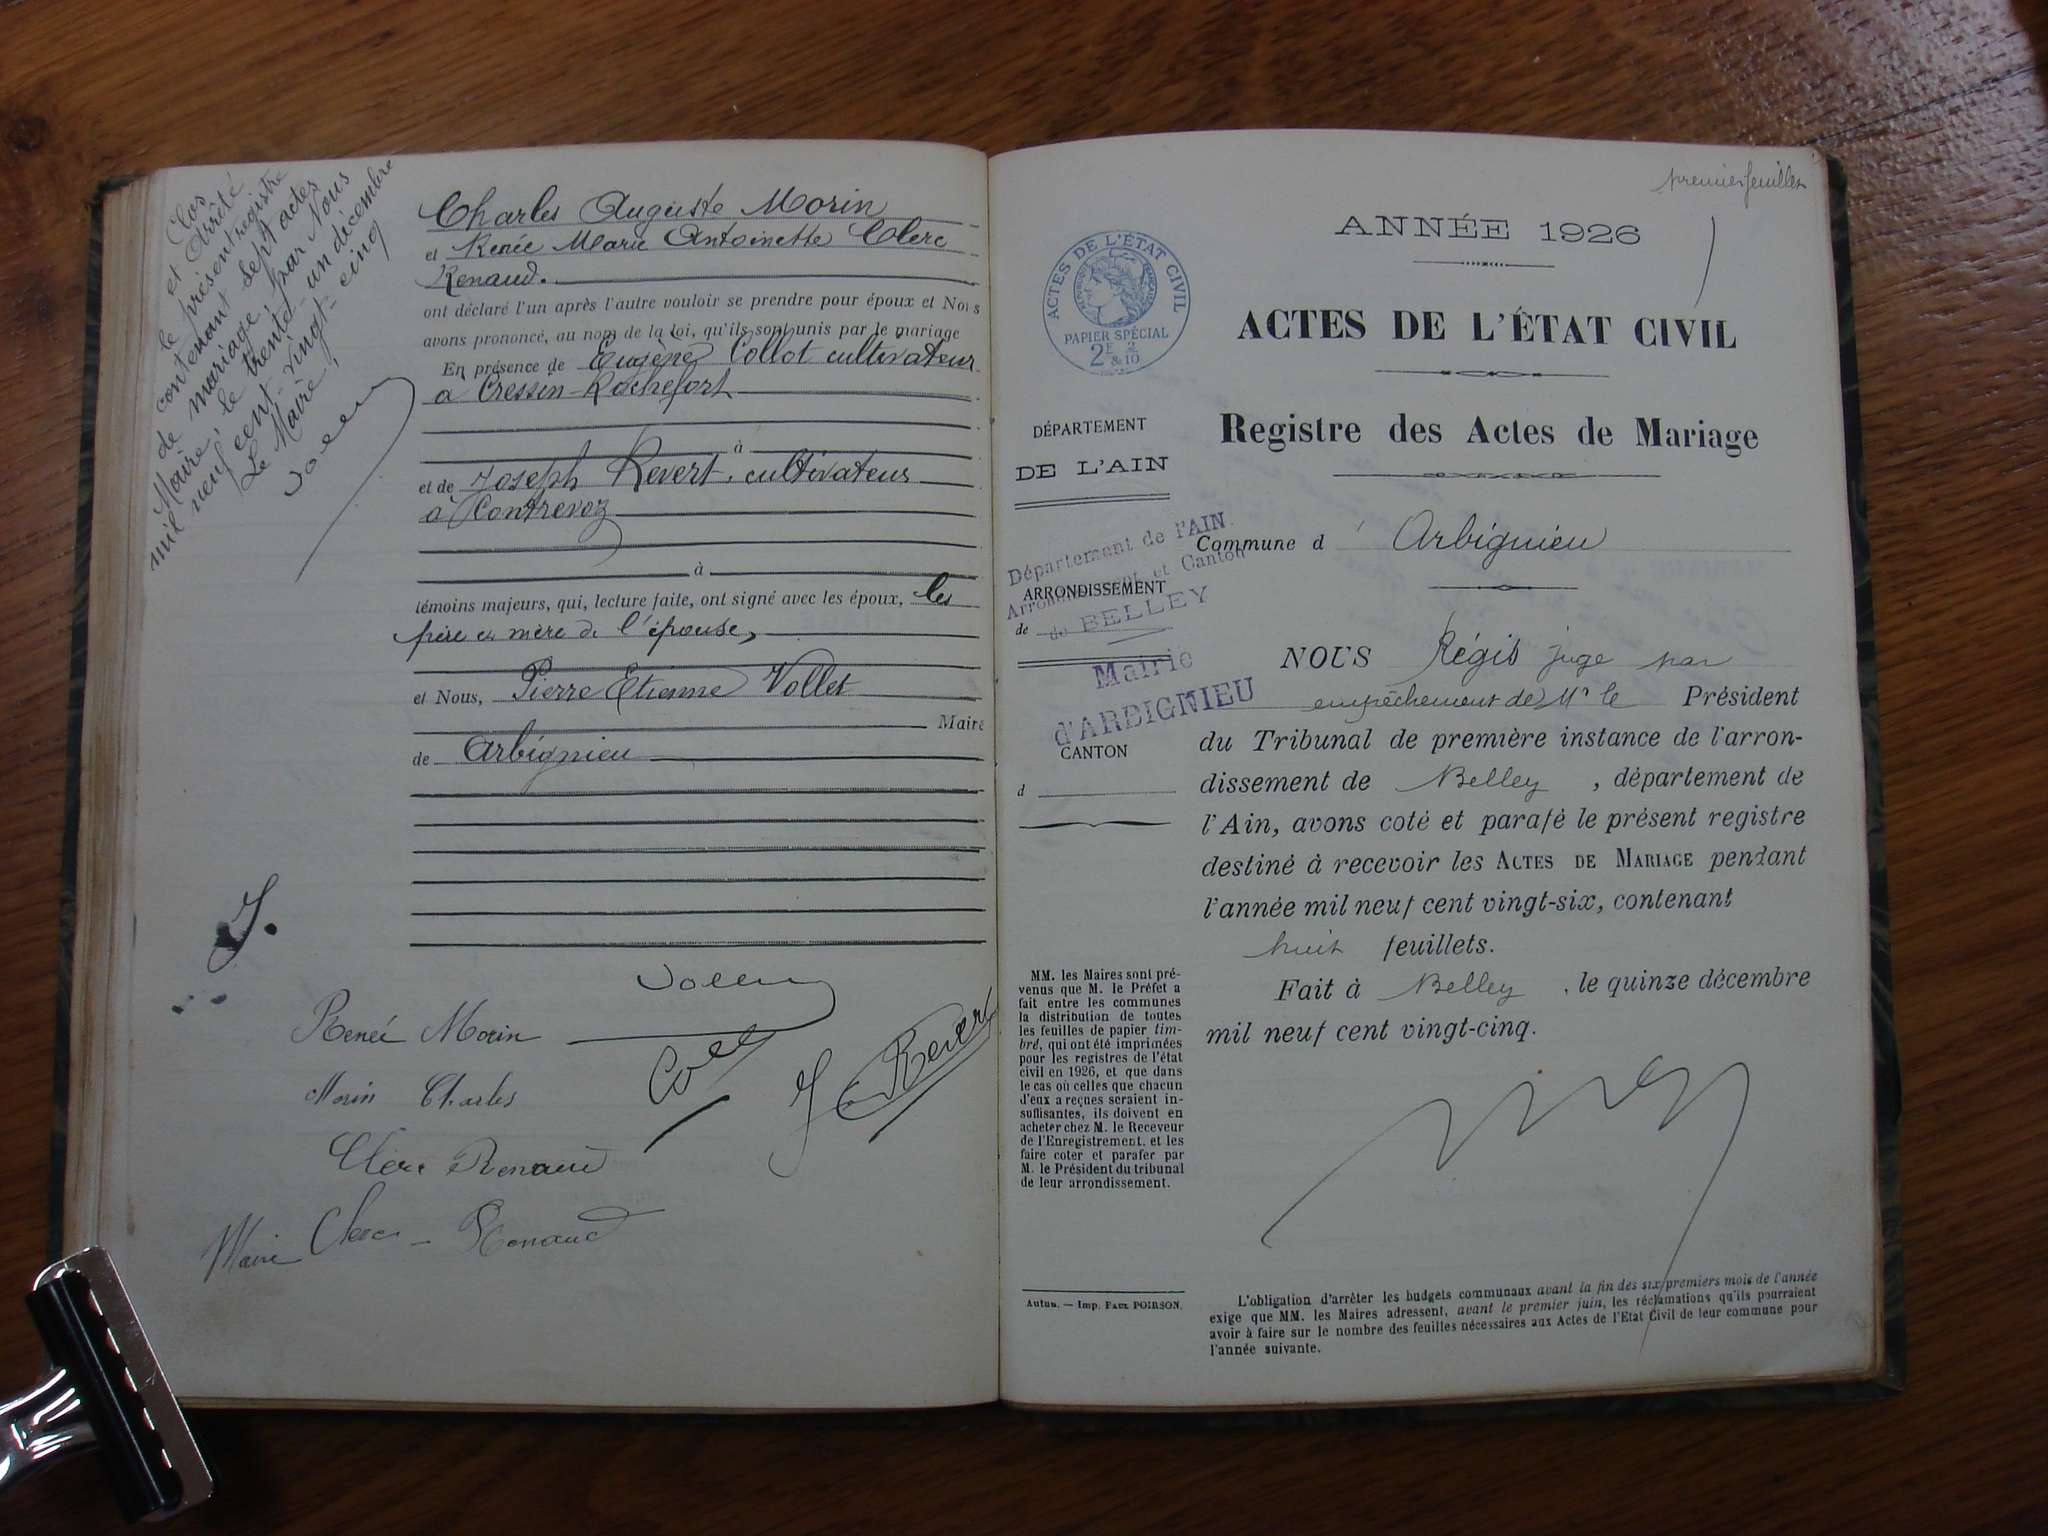 Clos
et Arrêté
le présent registre
contenant sept actes
de mariage, par Nous
Maire, le trente-un décembre
mil neuf cent vingt-cinq
Le Maire,
Charles Auguste Morin
et Renée Marie Antoinette Clerc
Renaud.
ont déclaré l'un après l'autre vouloir se prendre pour époux et Nous
avons prononcé, au nom de la loi, qu'ils sont unis par le mariage
En présence de Eugène Collot cultivateur
à Cressin-Rochefort
à
et de Joseph Revert, cultivateur
à Contrevoz
à
témoins majeurs, qui, lecture faite, ont signé avec les époux, les
père et mère de l'épouse,
et Nous, Pierre Etienne Vollet
Maire
de Arbignieu
7.
Renée Morin
Morin Charles
J Revert
Clerc Renaud
Marie Clerc-Renaud
premier feuillet
ANNÉE 1926
ACTES DE L'ÉTAT CIVIL
RÉPUBLIQUE FRANÇAISE
PAPIER SPÉCIAL
2F & 2/10
ACTES DE L'ÉTAT CIVIL
Registre des Actes de Mariage
DÉPARTEMENT
DE L'AIN
Département de l'AIN
Arrondissement et Canton
de BELLEY
Mairie
d'ARBIGNIEU
ARRONDISSEMENT
de
CANTON
d
Commune d' Arbignieu
NOUS Régis juge par
empêchement de Mr le Président
du Tribunal de première instance de l'arron-
dissement de Belley, département de
l'Ain, avons coté et parafé le présent registre
destiné à recevoir les ACTES DE MARIAGE pendant
l'année mil neuf cent vingt-six, contenant
huit feuillets.
Fait à Belley, le quinze décembre
mil neuf cent vingt-cinq.
MM. les Maires sont pré-
venus que M. le Préfet a
fait entre les communes
la distribution de toutes
les feuilles de papier tim-
bré, qui ont été imprimées
pour les registres de l'état
civil en 1926, et que dans
le cas où celles que chacun
d'eux a reçues seraient in-
suffisantes, ils doivent en
acheter chez M. le Receveur
de l'Enregistrement, et les
faire coter et parafer par
M. le Président du tribunal
de leur arrondissement.
Autun. — Imp. Paul POIRSON.
L'obligation d'arrêter les budgets communaux avant la fin des six premiers mois de l'année
exige que MM. les Maires adressent, avant le premier juin, les réclamations qu'ils pourraient
avoir à faire sur le nombre des feuilles nécessaires aux Actes de l'Etat Civil de leur commune pour
l'année suivante.